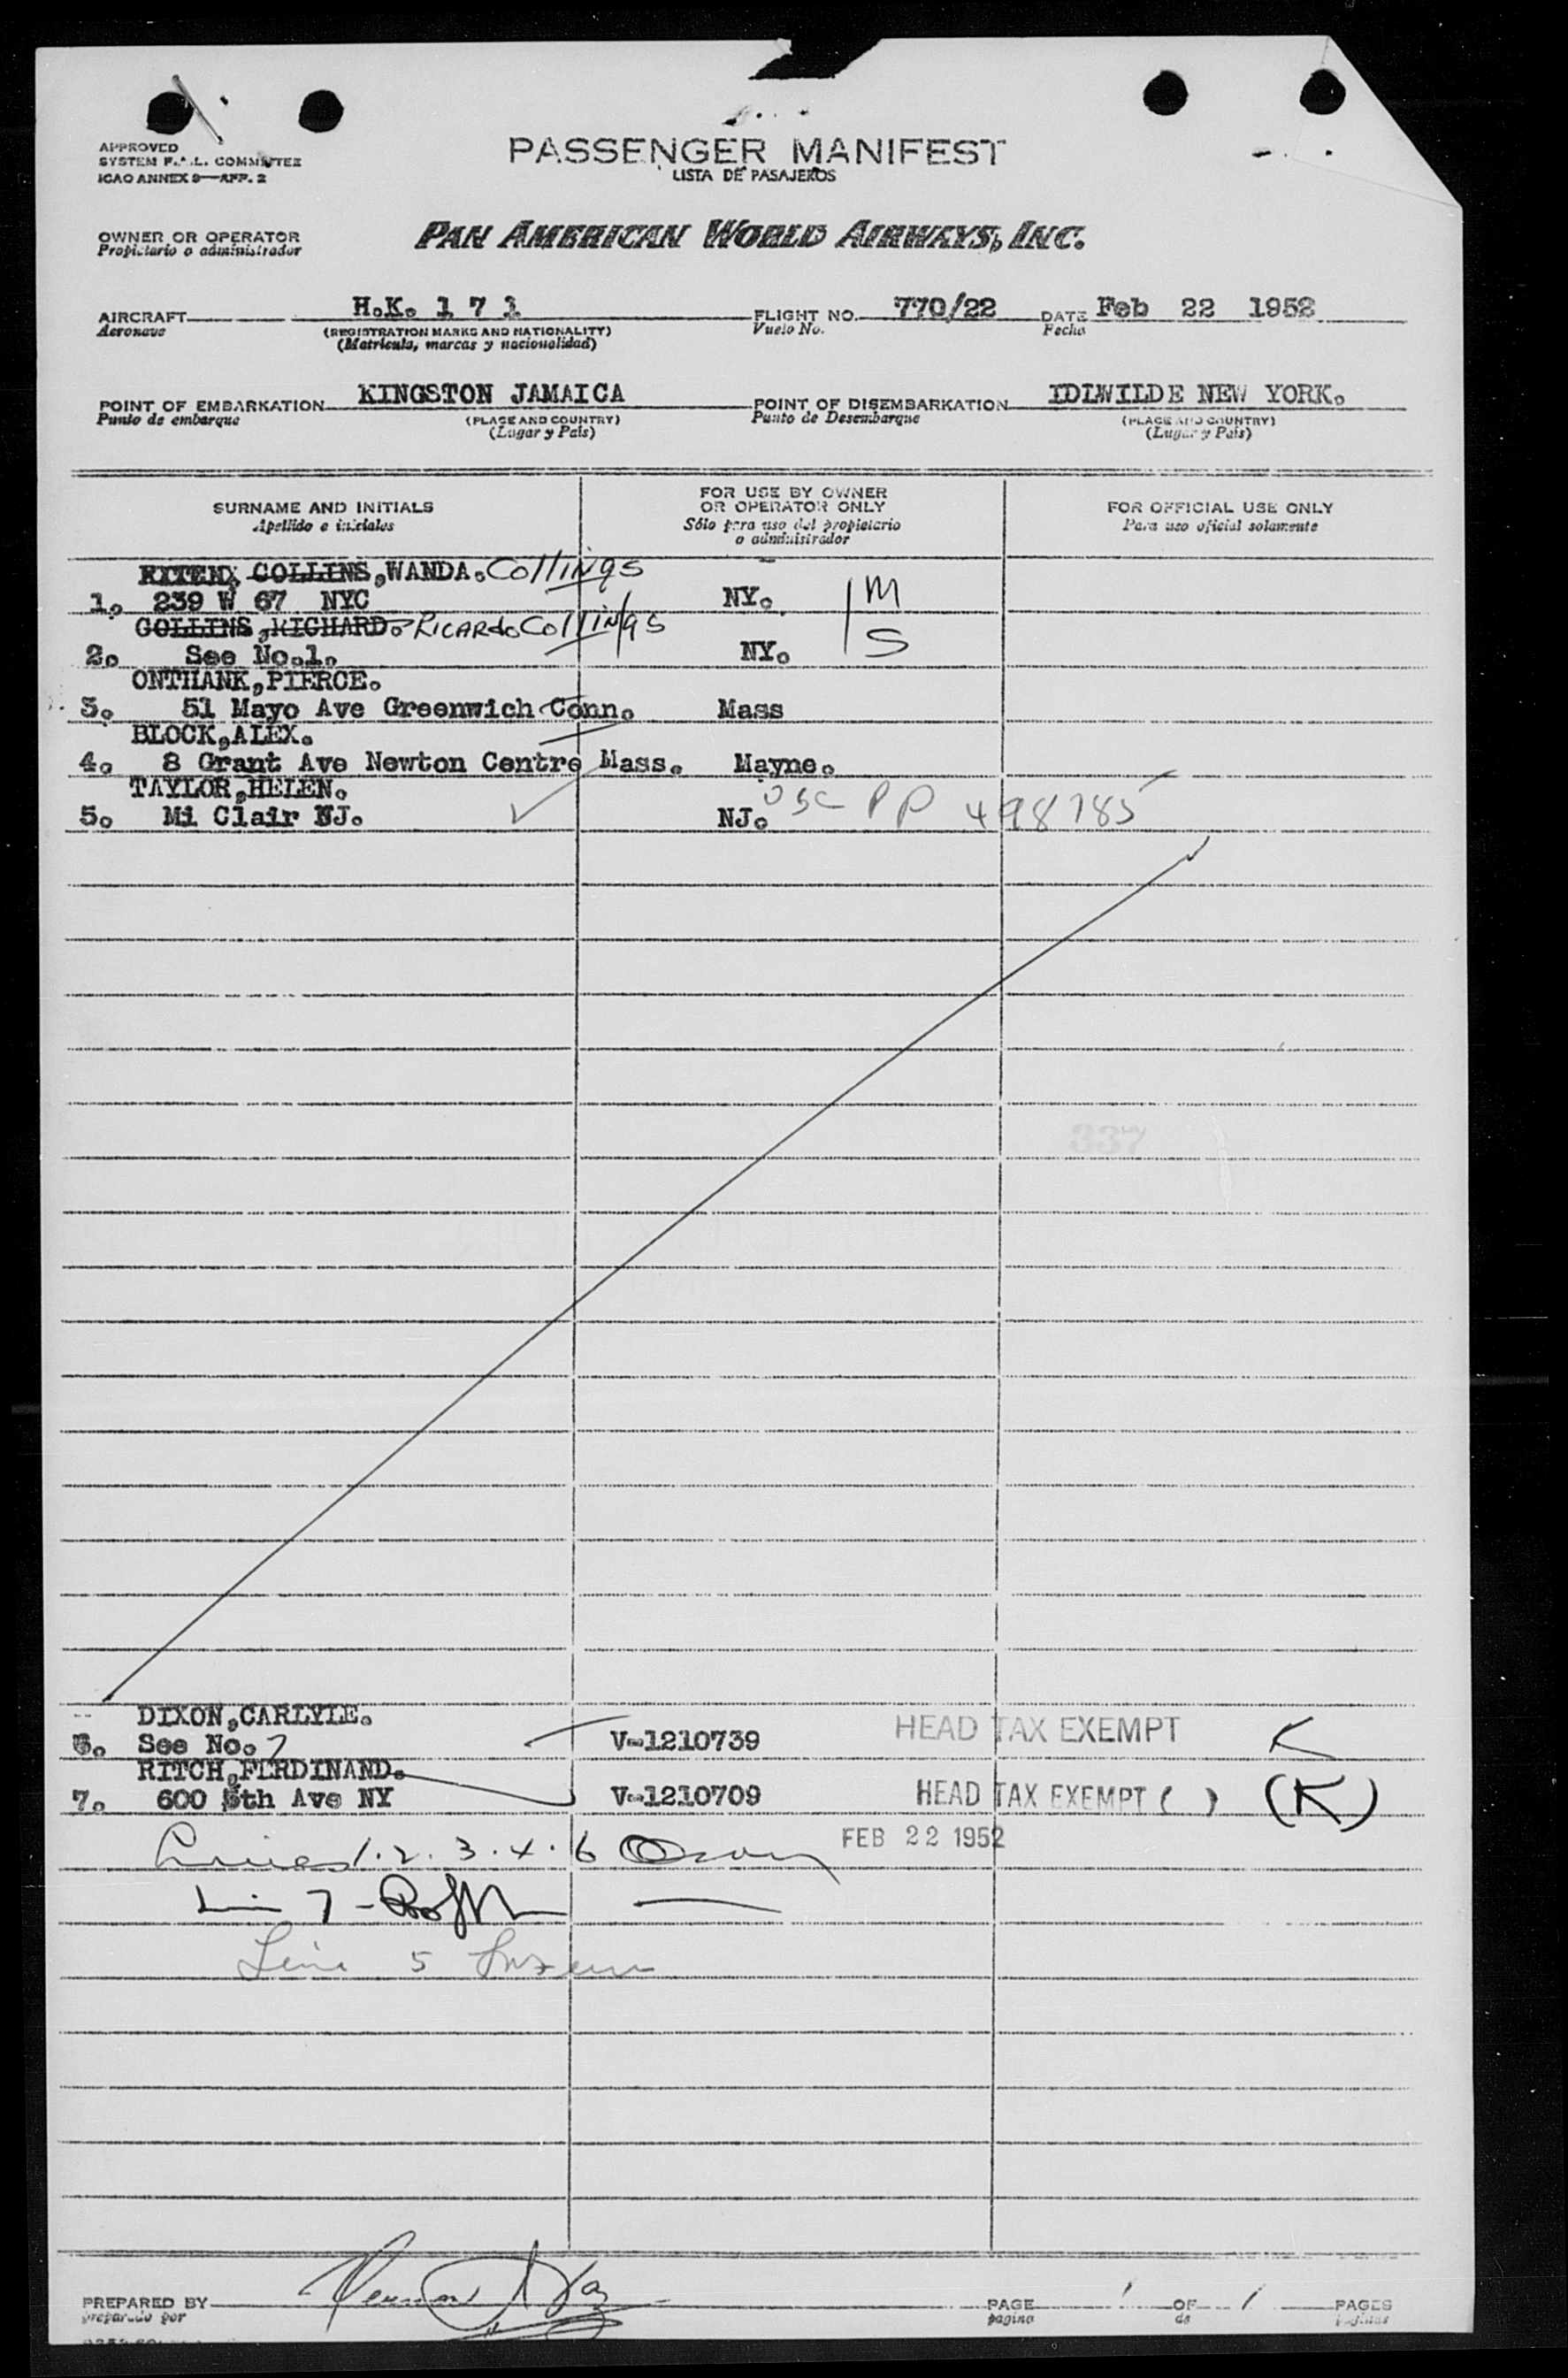 APPROVED
SYSTEM F.A.L. COMMITTEE
ICAO ANNEX 9—APP. 2
PASSENGER MANIFEST
LISTA DE PASAJEROS
OWNER OR OPERATOR
Propietario o administrador
PAN AMERICAN WORLD AIRWAYS, INC.
AIRCRAFT H.K. 1 7 1 FLIGHT NO. 770/22 DATE Feb 22 1952
Aeronave (REGISTRATION MARKS AND NATIONALITY) Vuelo No. Fecha
(Matricula, marcas y nacionalidad)
POINT OF EMBARKATION KINGSTON JAMAICA POINT OF DISEMBARKATION IDLWILDE NEW YORK.
Punto de embarque (PLACE AND COUNTRY) Punto de Desembarque (PLACE AND COUNTRY)
(Lugar y País) (Lugar y País)
SURNAME AND INITIALS
Apellido e iniciales
FOR USE BY OWNER
OR OPERATOR ONLY
Sólo para uso del propietario
o administrador
FOR OFFICIAL USE ONLY
Para uso oficial solamente
COLLINS, WANDA. Collings
1. 239 W 67 NYC NY. M
COLLINS, RICHARD. Ricardo Collings
2. See No.1. NY. S
ONTHANK, PIERCE.
3. 51 Mayo Ave Greenwich Conn. Mass
BLOCK, ALEX.
4. 8 Grant Ave Newton Centre Mass. Mayne.
TAYLOR, HELEN.
5. Mi Clair NJ. NJ. USC PP 498785
337
DIXON, CARLYLE.
6. See No. 7 V-1210739 HEAD TAX EXEMPT K
RITCH, FERDINAND.
7. 600 5th Ave NY V-1210709 HEAD TAX EXEMPT ( ) (K)
Lines 1. 2. 3. 4. 6 FEB 22 1952
Lin 7 -
Line 5
PREPARED BY PAGE 1 OF 1 PAGES
preparado por pagina de paginas